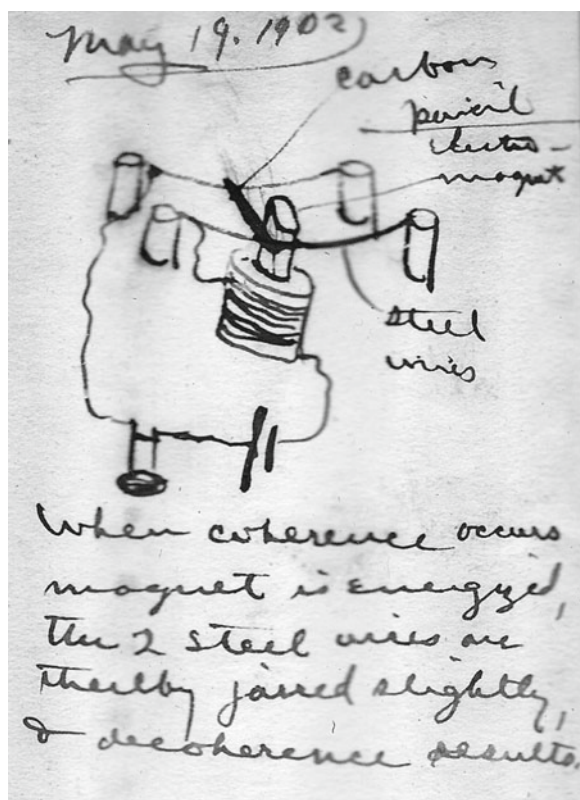 May 19. 1902
carbon
pencil
electro-
magnet
steel
wires
When coherence occurs
magnet is energized,
the 2 steel wires are
thereby jarred slightly,
& decoherence results.